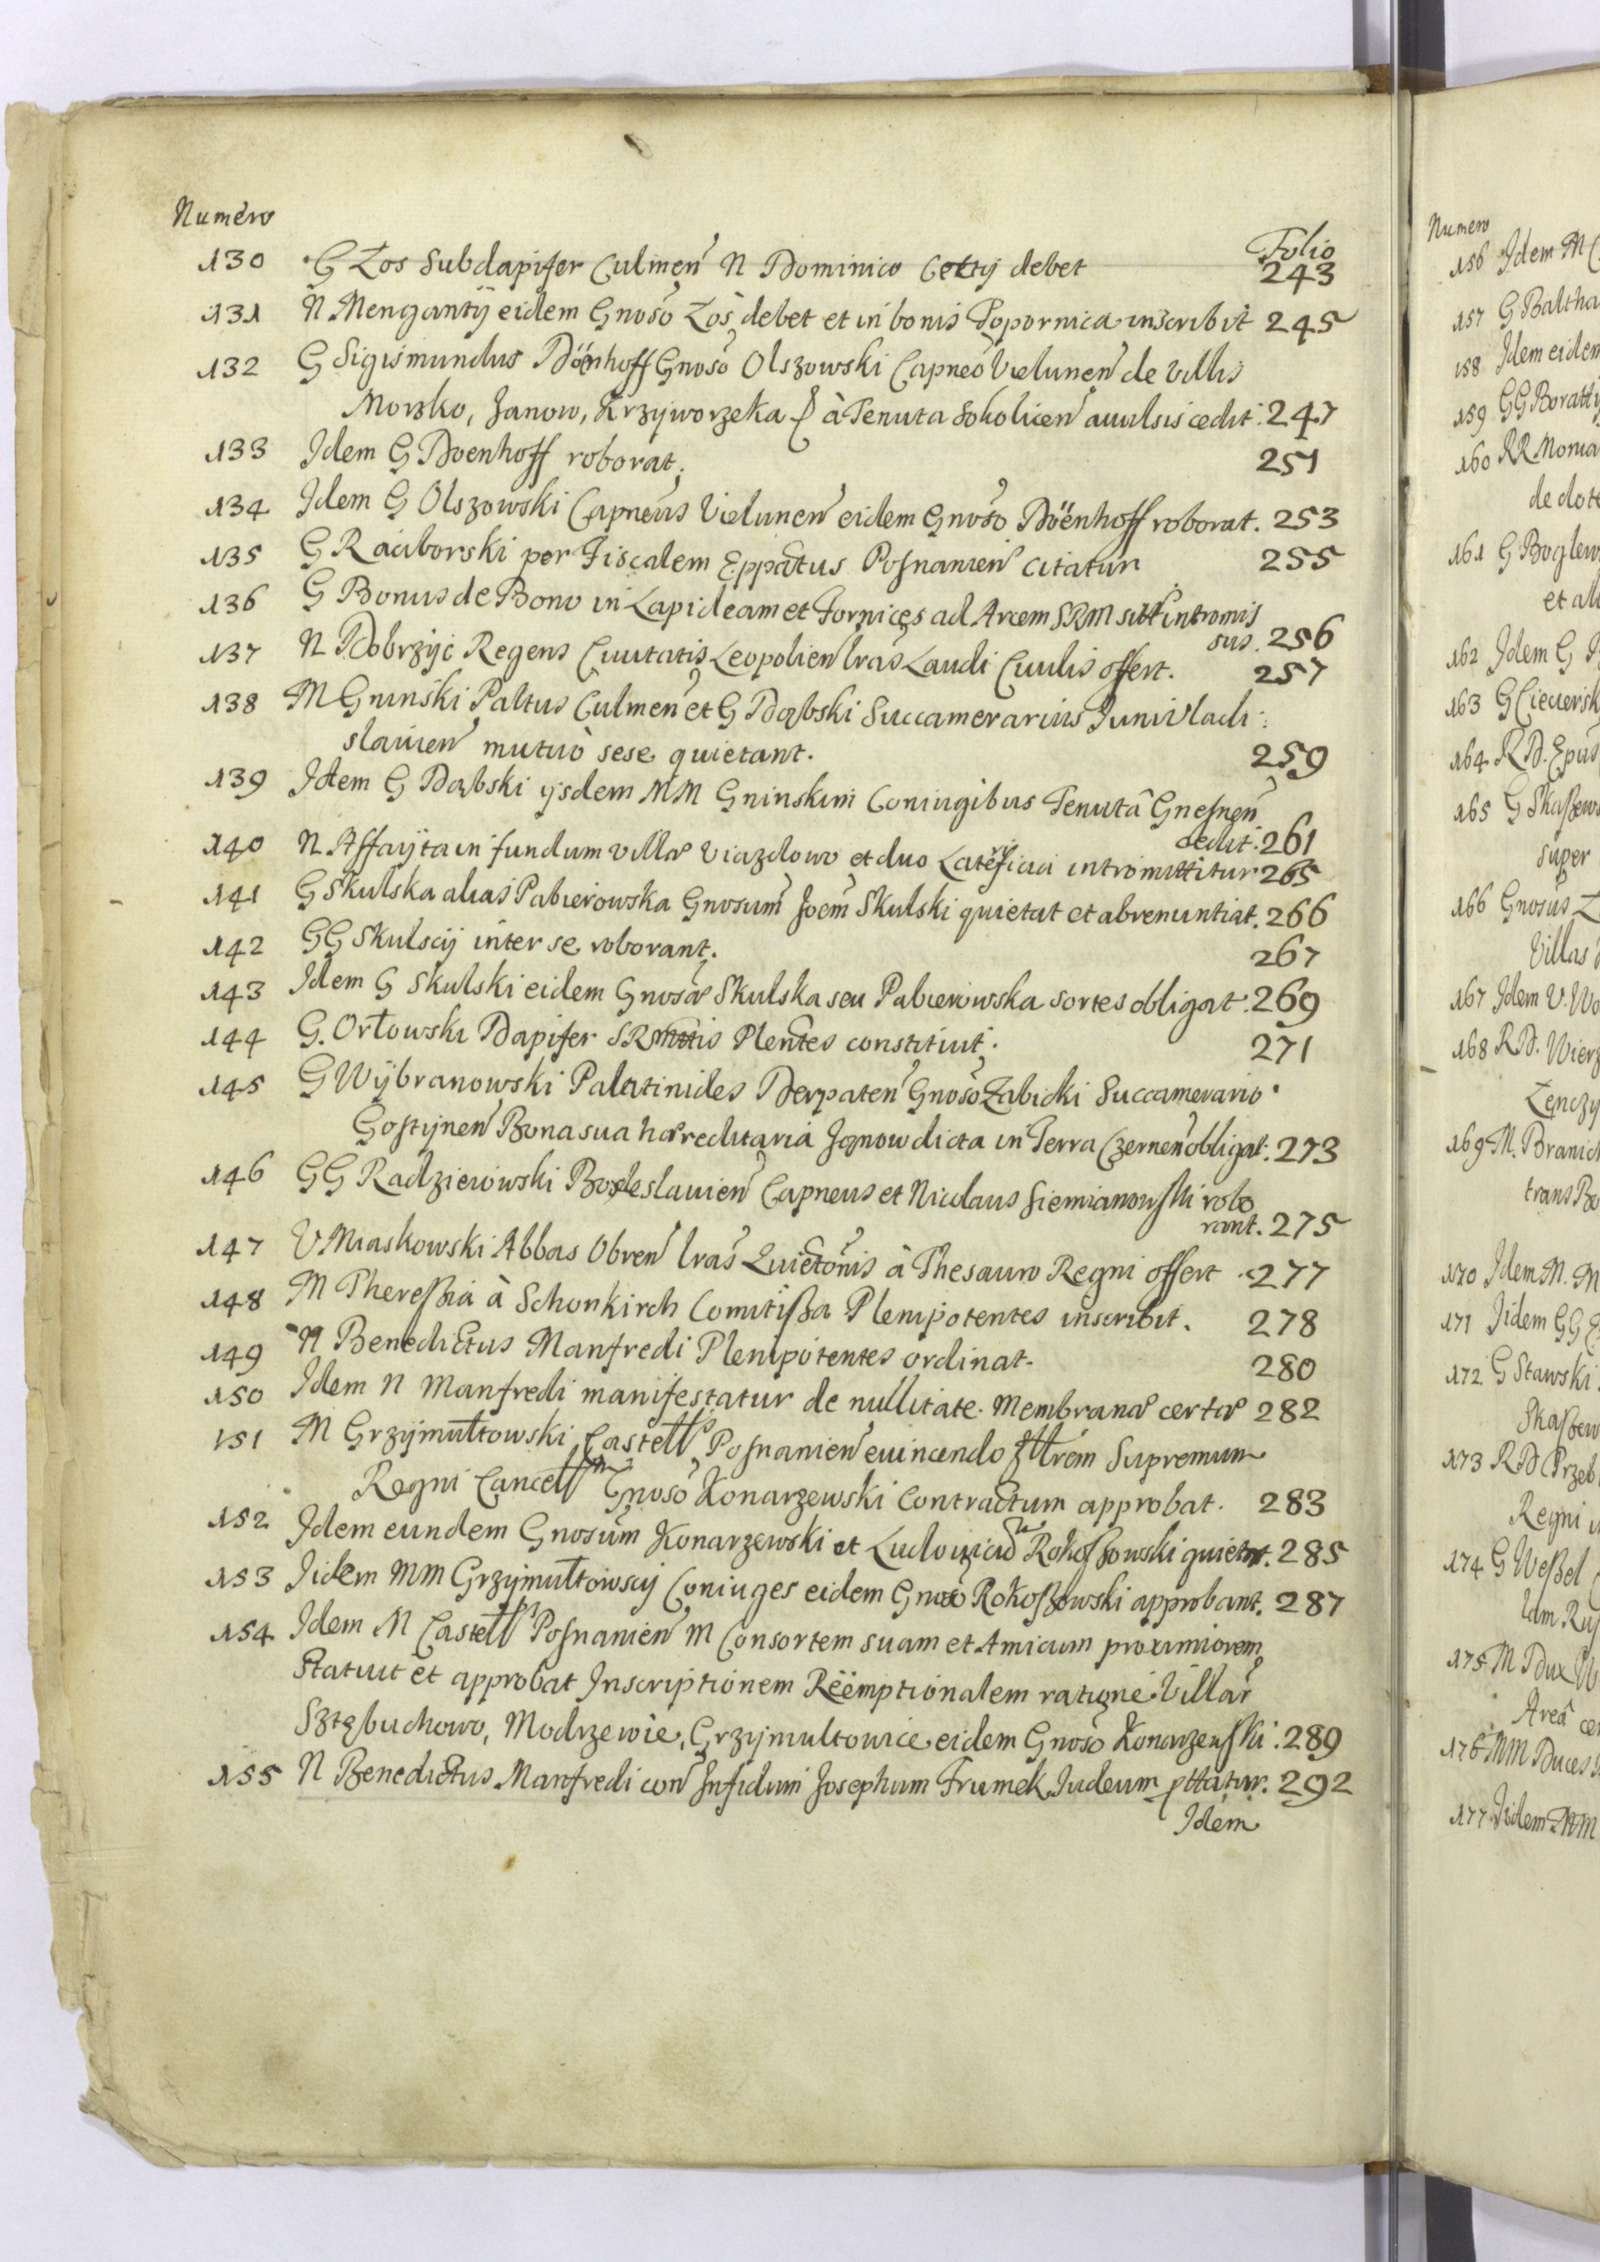 Numero
Folio
130 G Łos Subdapifer Culmen̄ N Dominico Cettij debet 243
131 N Mengantÿ eidem Gnoso Łos debet et in bonis Popornica inscribit 245
132 G Sigismundus Döenhoff Gnoso Olszowski Capneo Vielunen̄ de Villis
Morzko, Janow, Krzyworzeka à Tenuta Sokolicen̄ avulsis cedit. 247
133 Idem G Doenhoff roborat. 251
134 Idem G Olszowski Capneus Vielunen̄ eidem Gnoso Döenhoff roborat. 253
135 G Raciborski per Fiscalem Eppatus Posnanien̄ citatur 255
136 G Bonus de Bono in Lapideam et Fornices ad Arcem SRM sitt intromis
sus. 256
137 N Dobrzyc Regens Civitatis Leopolien̄ lras Laudi Civilis offert. 257
138 M Gninski Paltus Culmen̄ et G Dąbski Succamerarius Junivladi:
slavien̄ mutuò sese quietant. 259
139 Idem G Dąbski ijsdem MM Gninskim Coniugibus Tenutâ Gnesnen̄
cedit. 261
140 N Affayta in fundum villæ Viazdowo et duo Laterificia intromittitur 265
141 G Skulska alias Pabierowska Gnosum Joem Skulski quietat et abrenuntiat. 266
142 GG Skulscij inter se roborant. 267
143 Idem G Skulski eidem Gnosæ Skulska seu Pabierowska sortes obligat. 269
144 G. Orłowski Dapifer SRMttis Plentes constituit. 271
145 G Wÿbranowski Palatinides Derpaten̄ Gnoso Zabicki Succamerario
Gostynen̄ Bona sua hæreditaria Janow dicta in Terra Czernen̄ obligat. 273
146 GG Radzieiowski Boleslavien̄ Capneus et Nicolaus Siemianowski robo
rant. 275
147 V Miaskowski Abbas Obren̄ lras Quietonis à Thesauro Regni offert 277
148 M Theressia à Schonkirch Comitissa Plenipotentes inscribit. 278
149 N Benedictus Manfredi Plenipotentes ordinat. 280
150 Idem N Manfredi manifestatur de nullitate Membranæ certæ 282
151 M Grzymułtowski Castell Posnanien̄ evincendo frem Supremum
Regni Cancell Gnoso Konarzewski Contractum approbat. 283
152 Idem eundem Gnosum Konarzewski et Ludovicum Rokossowski quietat. 285
153 Iidem MM Grzymułtowscij Coniuges eidem Gnoso Rokossowski approbant. 287
154 Idem M Castell Posnanien̄ M Consortem suam et Amicum proximiorem
Statuit et approbat Inscriptionem Reëmptionalem ratione Villar
Sztębuchowo, Modrzewie, Grzymultowice eidem Gnoso Konarzewski. 289
155 N Benedictus Manfredi con̄ Infidum Josephum Frumek Iudeum pttatur. 292
Idem
Numero
156 Idem M
157 G Baltha
158 Idem eidem
159 GG Borattÿ
160 RR Monia
de dote
161 G Boglew
et ali
162 Idem G
163 G Ciecierski
164 R D. Epus
165 G Skaszew
super
166 Gnosus
Villas
167 Idem V. Wo
168 R D. Wierz
Łęnczy
169 M. Branick
trans Bo
170 Idem M. M
171 Iidem GG
172 G Stawski
Skaszew
173 R D Przeb
Regni
174 G Wessel
175 M Dux
Areâ cer
176 MM Duces
177 Iidem MM